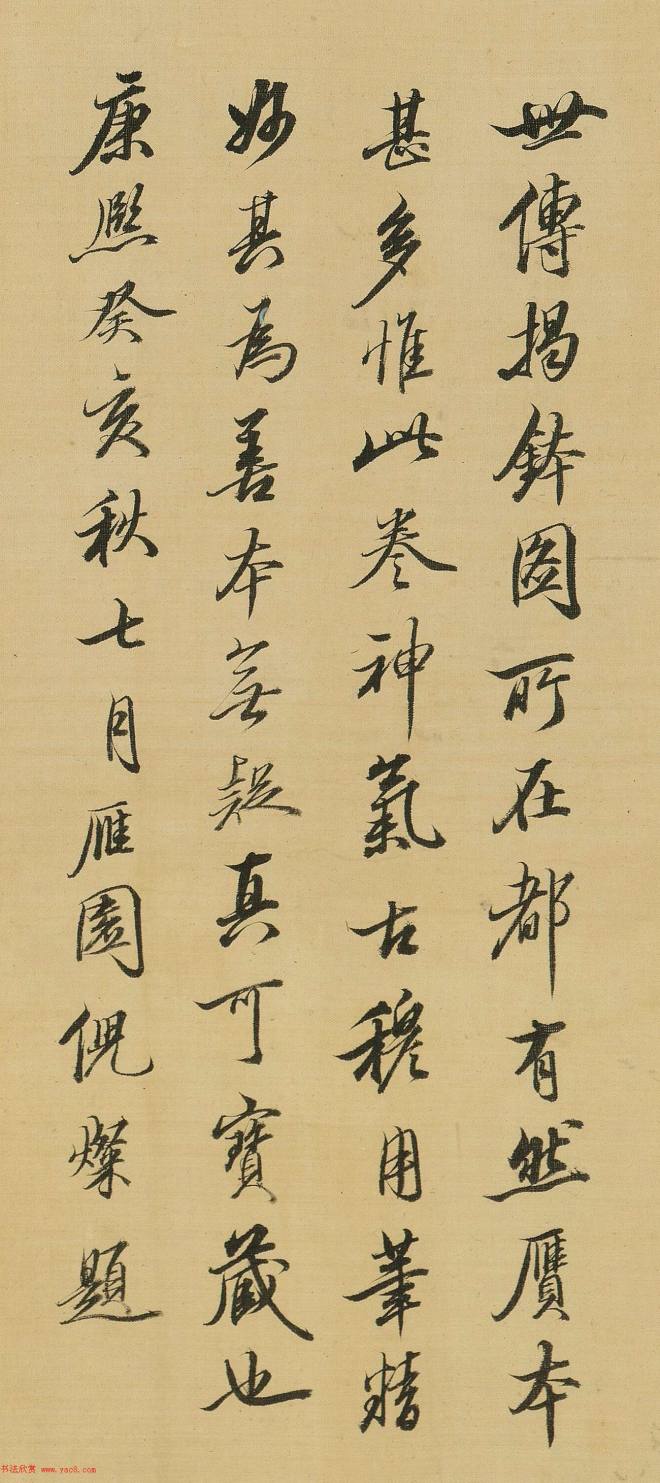 世傳揭鉢圖所在都有然贋本
甚多惟此卷神氣古穆用筆精
妙其為善本無疑真可寶藏也
康熙癸亥秋七月雁園倪燦題
书法欣赏 www.yac8.com